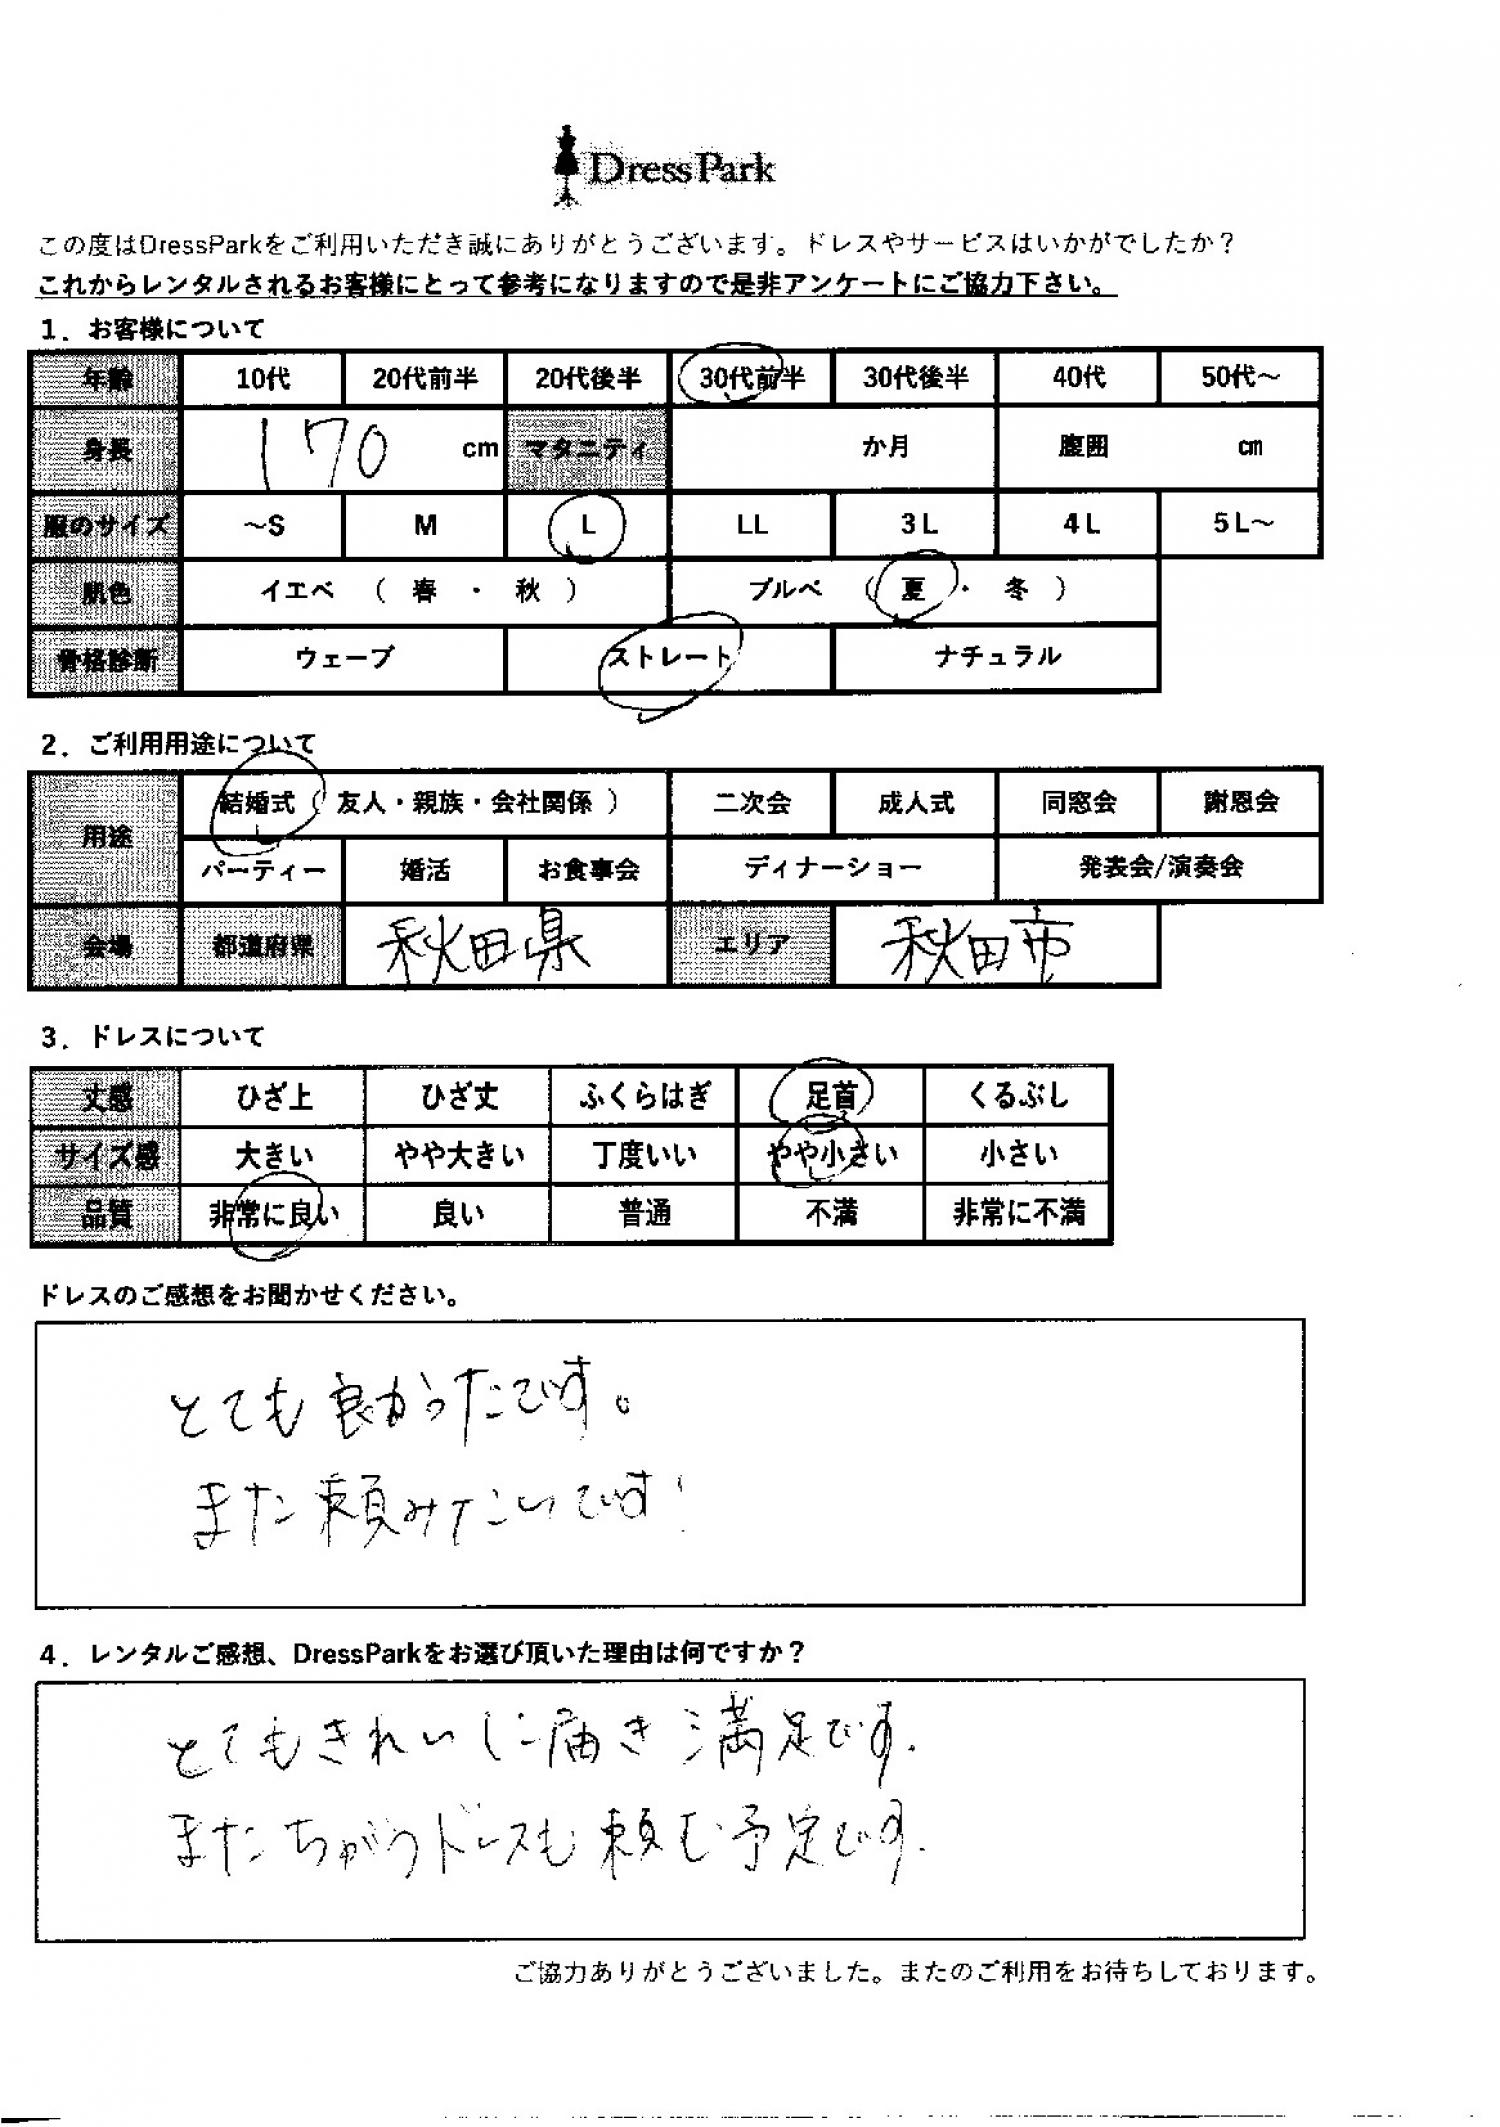 DressPark
この度はDressParkをご利用いただき誠にありがとうございます。ドレスやサービスはいかがでしたか？
これからレンタルされるお客様にとって参考になりますので是非アンケートにご協力下さい。
1．お客様について
年齢 10代 20代前半 20代後半 30代前半 30代後半 40代 50代～
身長 170 cm マタニティ か月 腹囲 cm
服のサイズ ～S M L LL 3L 4L 5L～
肌色 イエベ （ 春 ・ 秋 ） ブルベ （ 夏 ・ 冬 ）
骨格診断 ウェーブ ストレート ナチュラル
2．ご利用用途について
用途 結婚式（ 友人・親族・会社関係 ） 二次会 成人式 同窓会 謝恩会
パーティー 婚活 お食事会 ディナーショー 発表会/演奏会
会場 都道府県 秋田県 エリア 秋田市
3．ドレスについて
丈感 ひざ上 ひざ丈 ふくらはぎ 足首 くるぶし
サイズ感 大きい やや大きい 丁度いい やや小さい 小さい
品質 非常に良い 良い 普通 不満 非常に不満
ドレスのご感想をお聞かせください。
とても良かったです。
また頼みたいです!
4．レンタルご感想、DressParkをお選び頂いた理由は何ですか？
とてもきれいに届き満足です.
またちがうドレスも頼む予定です.
ご協力ありがとうございました。またのご利用をお待ちしております。